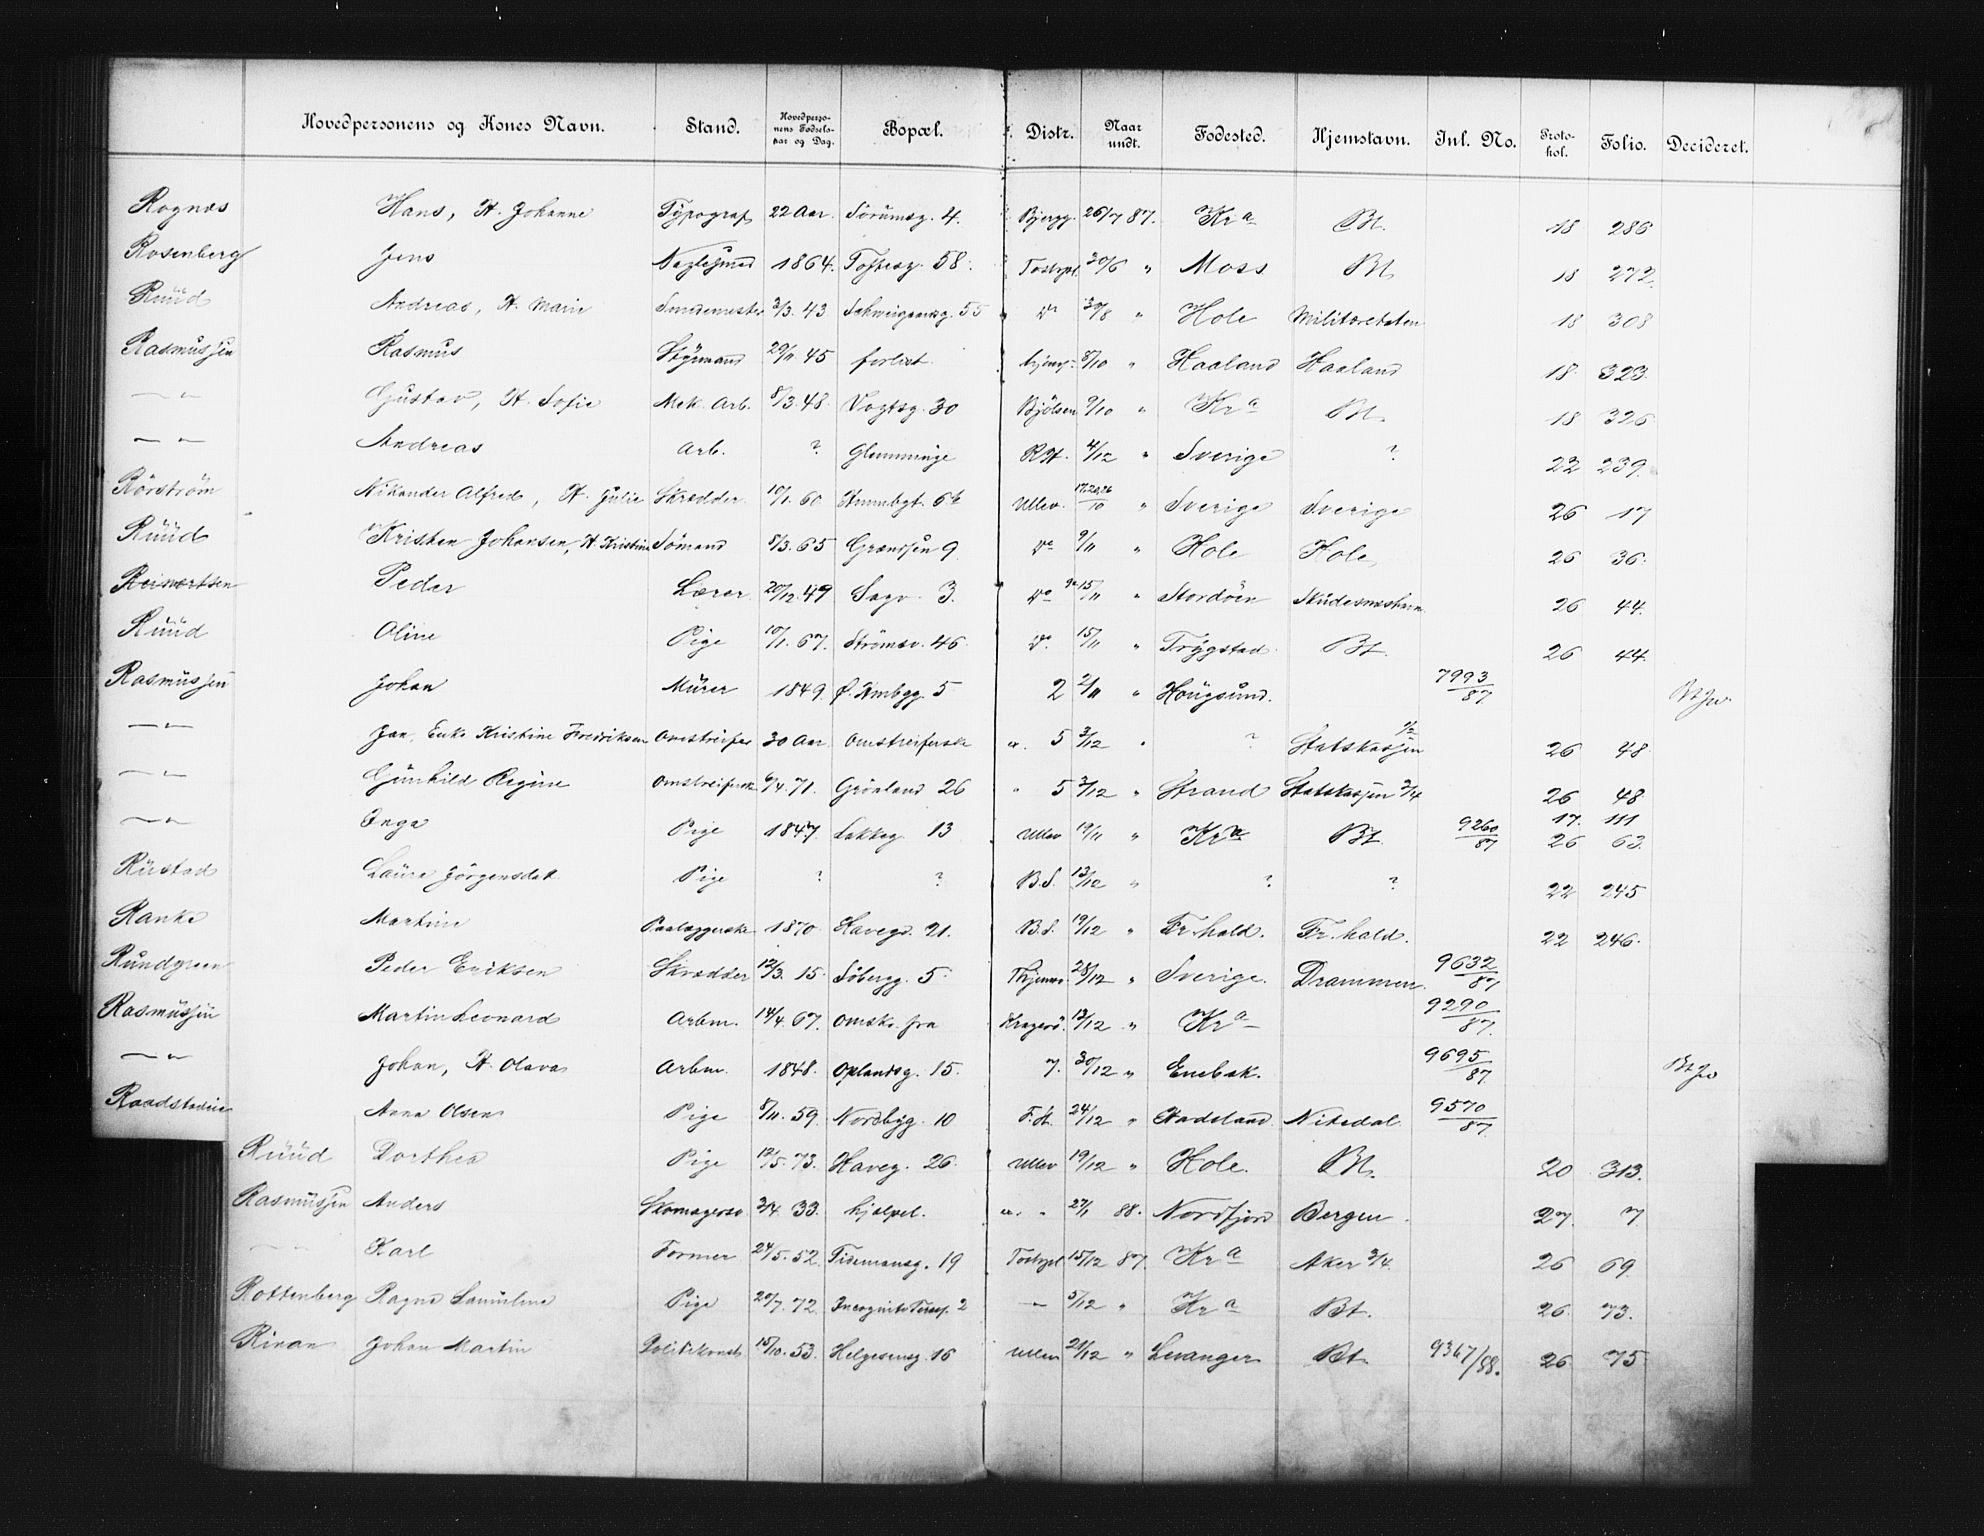 Hovedpersonens og Kones Navn. Stand. Hovedpersonens Fødselsaar og Dag. Bopæl. Distr. Naar undt. Fødested. Hjemstavn. Inl. No. Protokol. Folio. Decideret.
Rognæs Hans, H. Johanne Typograf 22 Aar. Sørumsg. 4. Bjergg. 26/7 87. Kra Bt. 18 286
Rosenberg Jens Naglesmed 1864. Toftesg. 58. 30/6 " Moss Bt 18 272.
Ruud Andreas, H. Marie 3/3. 43. Schweigaardsg. 55 Do 30/8 " Hole Militæretaten 18 308
Rasmussen Rasmus Styrmand 29/11 45 forlist 8/10 " Haaland Haaland 18. 323.
— " — Gustav, H. Sofie Mek. Arb. 8/3. 48. Vogtsg. 30 Bjølsen 9/10 " Kra Bt. 18 326
— " — Andreas Arb. ? Glemminge RH. 4/12 " Sverige ? 22 239.
Rörström Nikander Alfred, H. Julie Skrædder 10/1. 60. 6b Ullev. 17.20.26/10 " Sverige Sverige 26 17
Ruud Kristen Johansen, H. Kristine Sømand 8/3. 65 Grændsen 9. Do 9/11 " Hole Hole 26 36.
Reinertsen Peder Lærer 20/12. 49 Sagv. 3. Do 15/11 " Stordøen Skudesneshavn 26 44.
Ruud Oline Pige 10/1. 67. Strömsv. 46. Do 15/11 " Trygstad Bt. 26 44.
Rasmussen Johan Murer 1849. Ø. Hmbgg. 5 2 2/11 " Hougsund. 7993/87
— " — Jan, Enke Kristine Fredriksen Omstreifer 30 Aar. Omstreiferske 5 3/12 " ? Statskassen 1/2 26 48.
— " — Gunhild Regine Omstreiferske 6/4. 71. Grönland 26 " 5 3/12 " Strand Statskassen 3/4 26 48.
— " — Inga Pige 1847. Lakkeg. 13 Ullev 19/11 " Kra Bt. 9260/87 17. 111
26 63.
Rustad Laura Jörgensdat. Pige ? ? B.S. 13/12 " ? ? 22 245
Ranke Martine Paalæggerske 1870. Haveg. 21. B.S. 19/12 " Fr.hald. Fr.hald. 22 246.
Rundgreen Peder Eriksen Skrædder 12/3. 15. Söbergg. 5. 28/12 " Sverige. Drammen. 9632/87
Rasmussen Martin Leonard Arbm. 14/4. 67. Omsk. fra Kragerø. 13/12 " Kra 9290/87.
— " — Johan, H. Olava Arbm. 1848. Oplandsg. 15. 7. 30/12 " Enebak. 9695/87
Anna Olsen Pige 8/11. 59. Nordbyg. 10 F.H. 24/12 " Hadeland Nitedal. 9570/87.
Ruud Dorthea Pige 12/5. 73. Haveg. 26. Ullev 19/12 " Hole. Bt. 20 313.
Rasmussen Anders Skomagersv 3/4. 33. hjælpel. 27/1 88. Nordfjord Bergen. 27. 7
— " — Karl Former 24/5. 52. Tidemansg. 19 15/12 87. Kra Aker 3/4. 26 69.
Rottenberg Ragna Samuline Pige 20/7. 72. Incognito Terass. 2 — 5/12 " Kra Bt. 26. 73.
Rinan Johan Martin Politikonst. 15/10. 53. Helgesensg. 16 Ullev 21/12 " Levanger Bt. 9367/88. 26 75